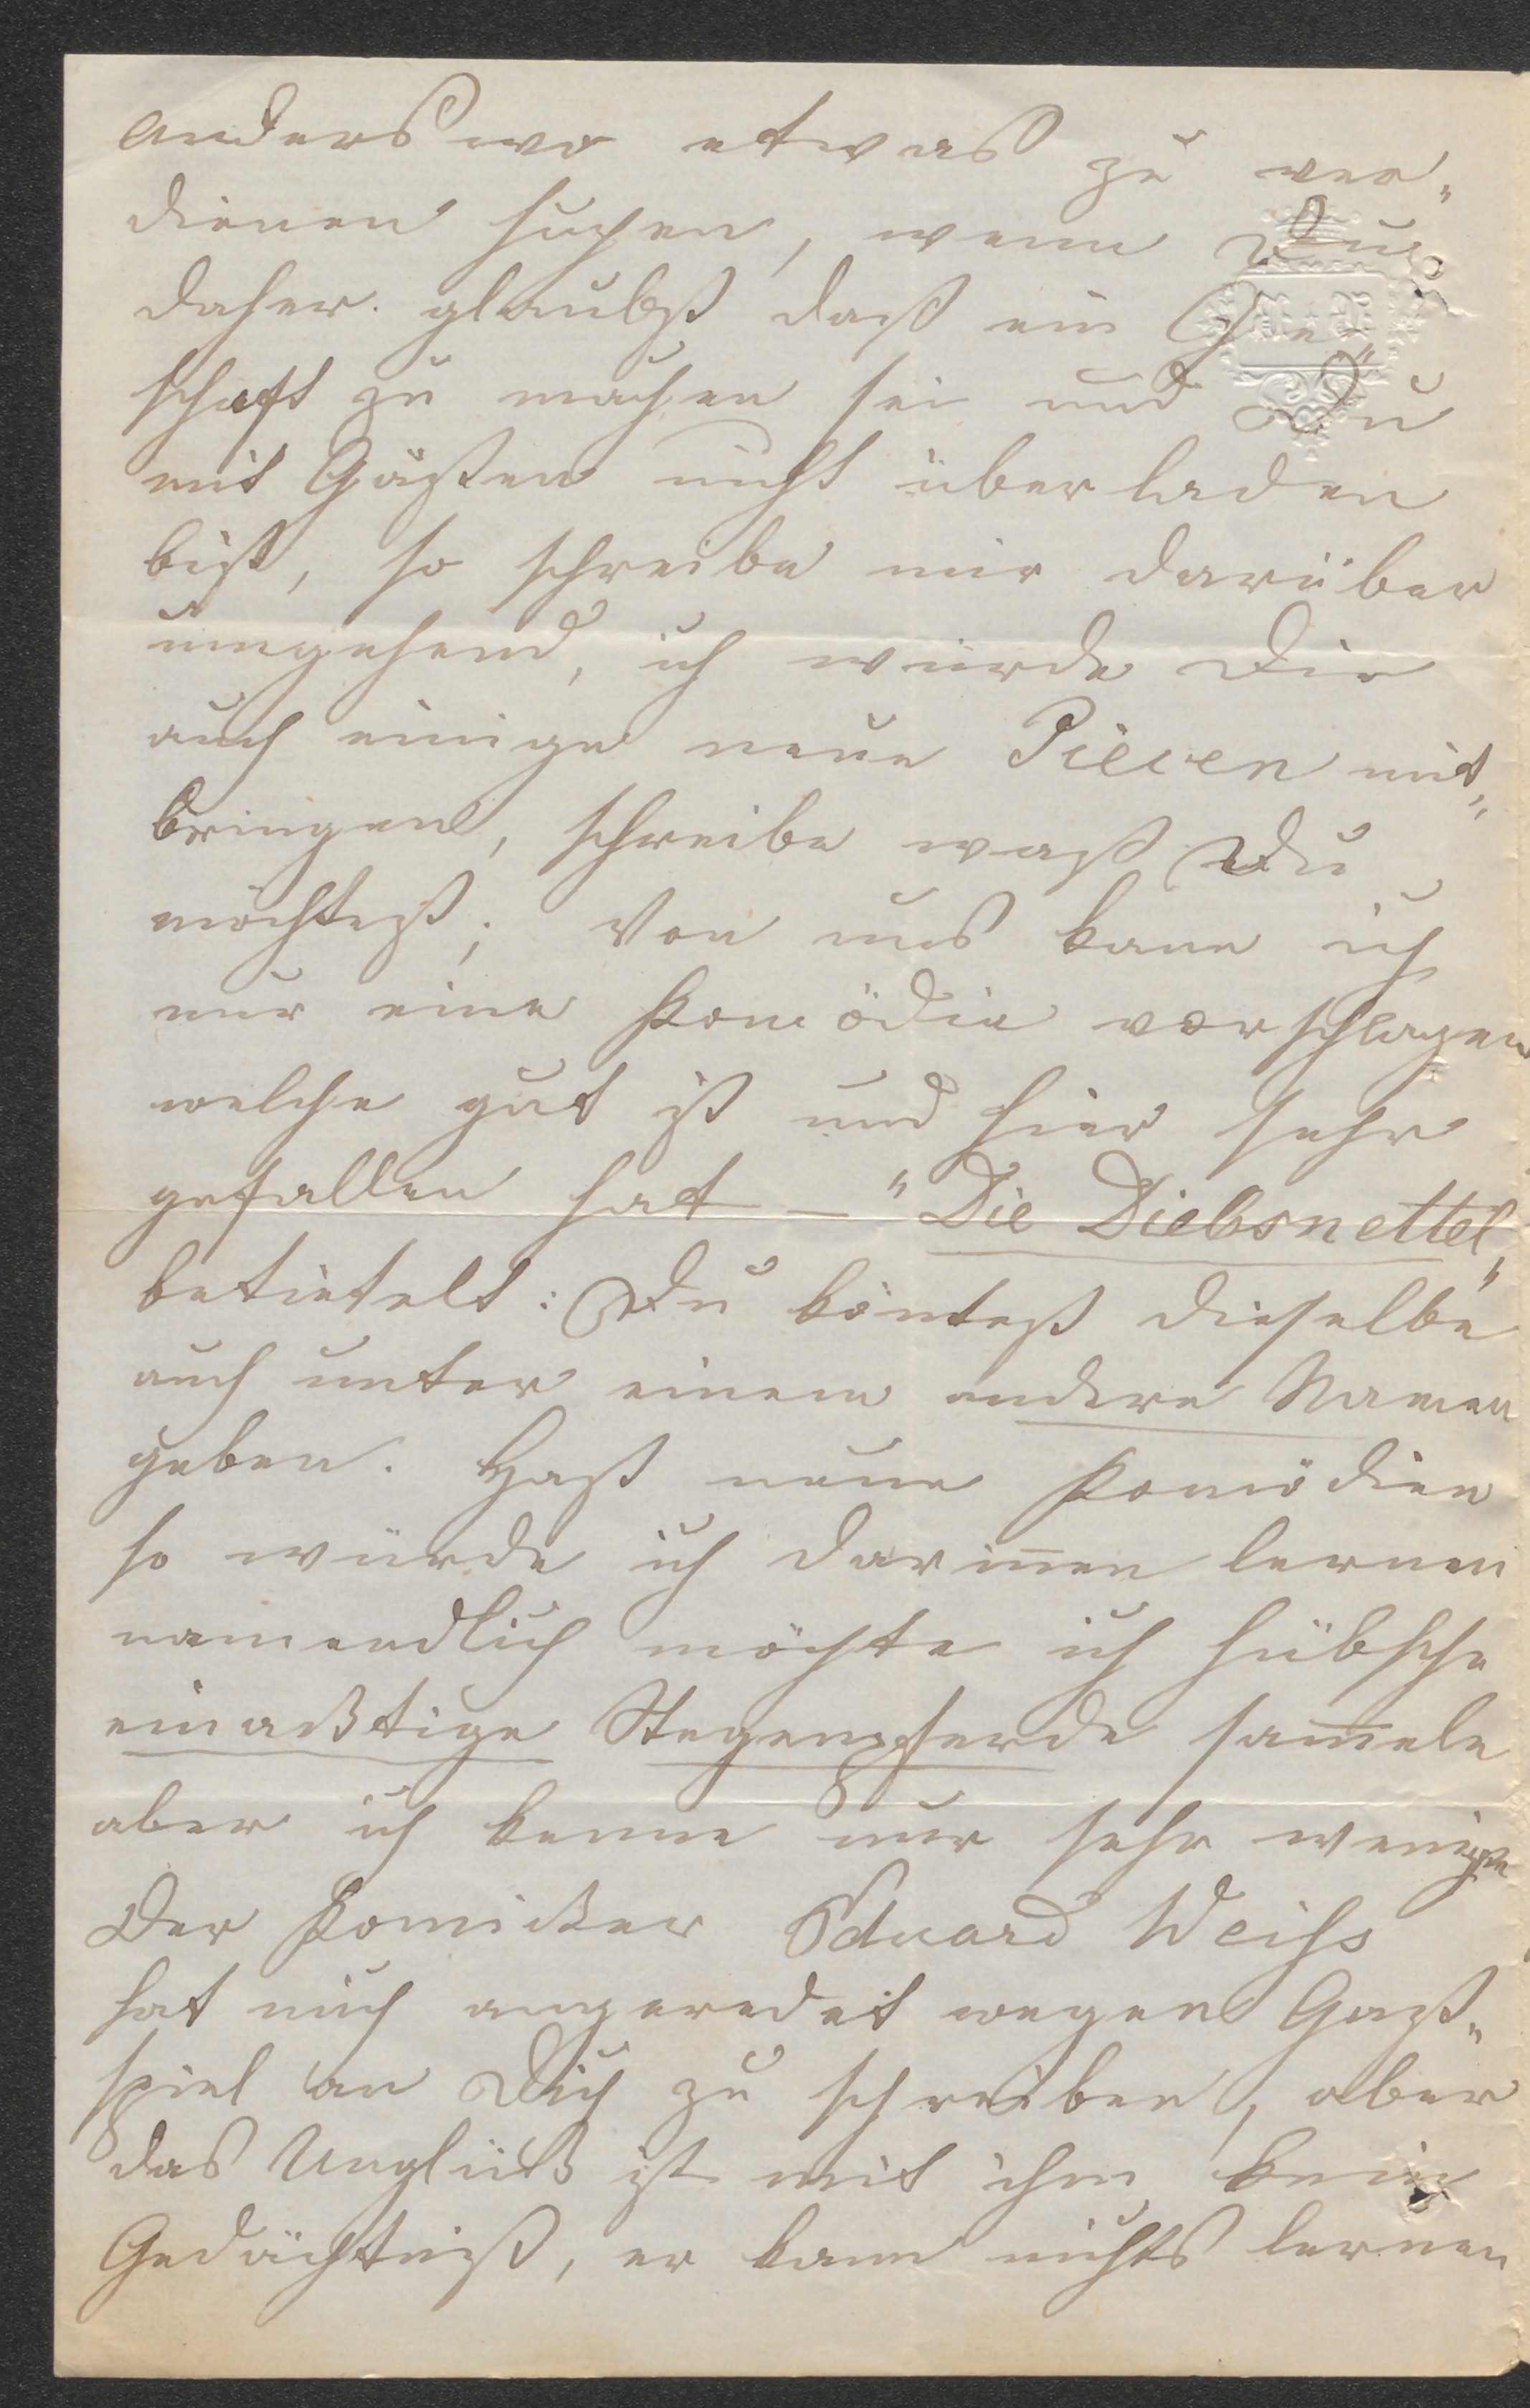 anders wo etwas zu ver„
dienen suchen, wenn Du
daher glaubst daß ein Ge„
schäft zu machen sei und Du
mit Gästen nicht überladen
bist, so schreibe mir darüber
umgehend, ich würde Dir
auch einige neue Piecen mit„
bringen, schreibe waß Du
möchtest; Von uns kann ich
nur eine Komödie vorschlagen
welche gut ist und hier sehr
gefallen hat — "Die Diebsnettel"
betietelt: Du köntest dieselbe
auch unter einem andern Namen
geben. Hast neue Komödien
so würde ich darinnen lernen
namendlich möchte ich hübsche
einacktige Stegenpferde sam̄eln
aber ich kenne nur sehr wenige
Der Komicker Eduard Weiss
hat mich angeredet wegen Gast„
spiel an Dich zu schreiben, aber
das Unglück ist mit ihm kein
Gedächtniß, er kann nichts lernen